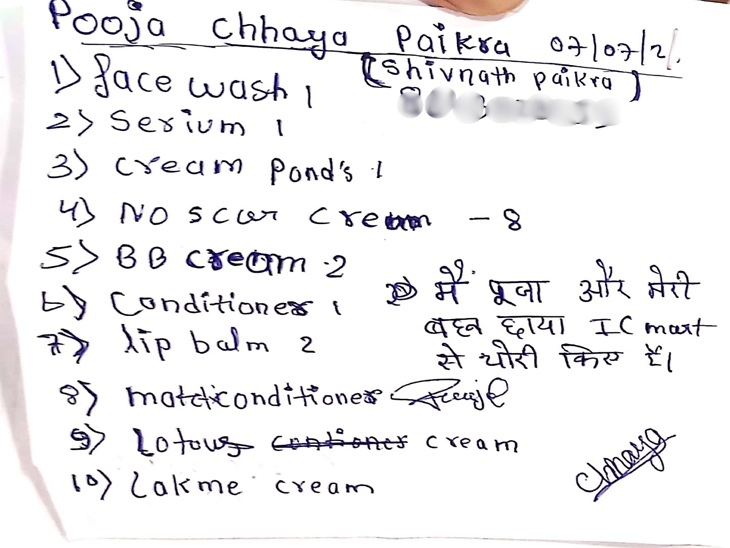 Pooja Chhaya Paikra 07/07/21.
(Shivnath paikra)
1) face wash 1
2) Serium 1
3) cream Pond's 1
4) NO scar cream - 8
5) BB cream 2
6) Conditioner 1
7) lip balm 2
में पूजा और मेरी
बहन छाया IC mart
से चोरी किए हैं।
8) conditioner Pooja
9) Lotous contioner cream
chhaya
10) Lakme cream